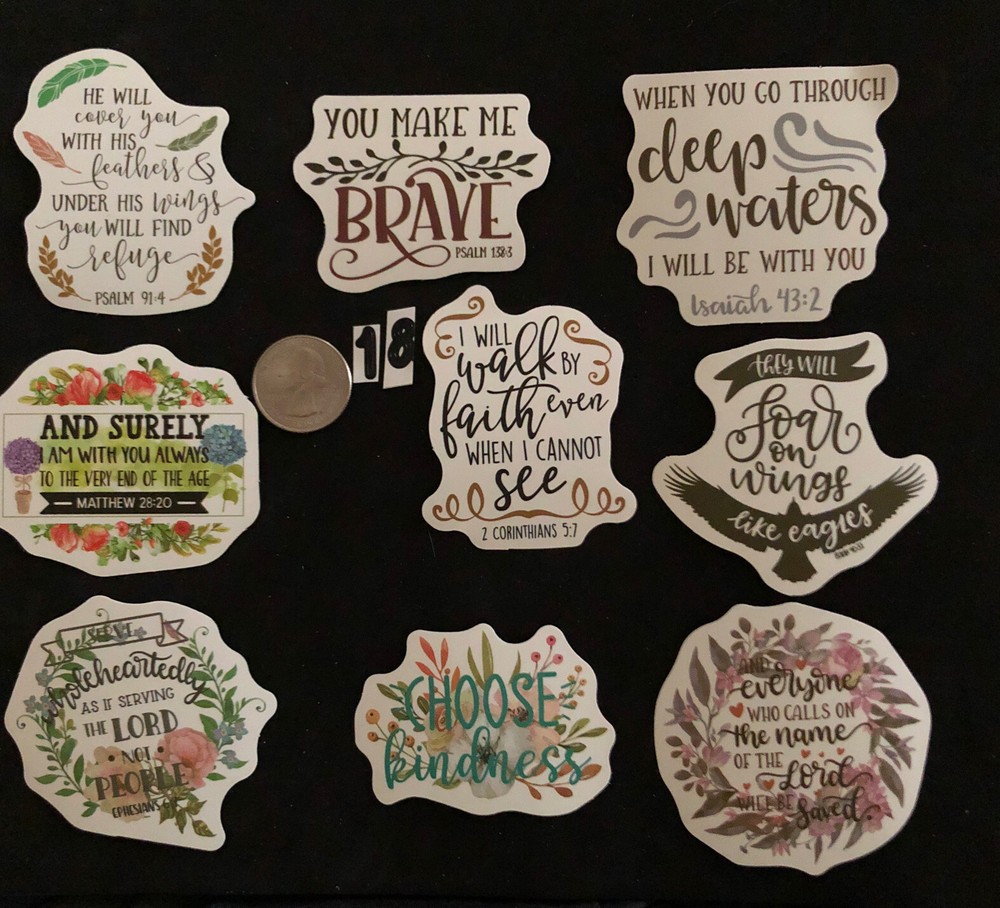 HE WILL
cover you
WITH HIS
feathers &
UNDER HIS wings
you WILL FIND
refuge
PSALM 91:4
YOU MAKE ME
BRAVE
PSALM 138:3
WHEN YOU GO THROUGH
deep
waters
I WILL BE WITH YOU
Isaiah 43:2
18
AND SURELY
I AM WITH YOU ALWAYS
TO THE VERY END OF THE AGE
MATTHEW 28:20
I WILL
walk BY
faith even
WHEN I CANNOT
see
2 CORINTHIANS 5:7
they WILL
Soar
on
wings
like eagles
SERVE
wholeheartedly
AS IF SERVING
THE LORD
• NOT •
PEOPLE
EPHESIANS
CHOOSE
kindness
AND
everyone
WHO CALLS ON
the name
OF THE
Lord
WILL BE
Saved.